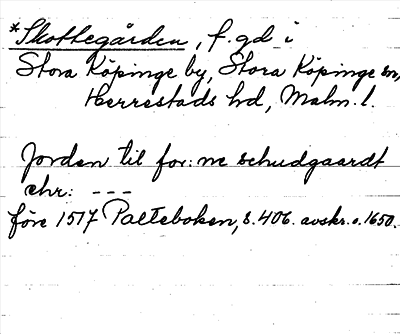 *Skottegården, f. gd i
Stora Köpinge by, Stora Köpinge sn,
Herrestads hd, Malm. l.
Jorden til for: ne schudgaardt
chr: ---
före 1517 Palteboken, s. 406. avskr. o. 1650.